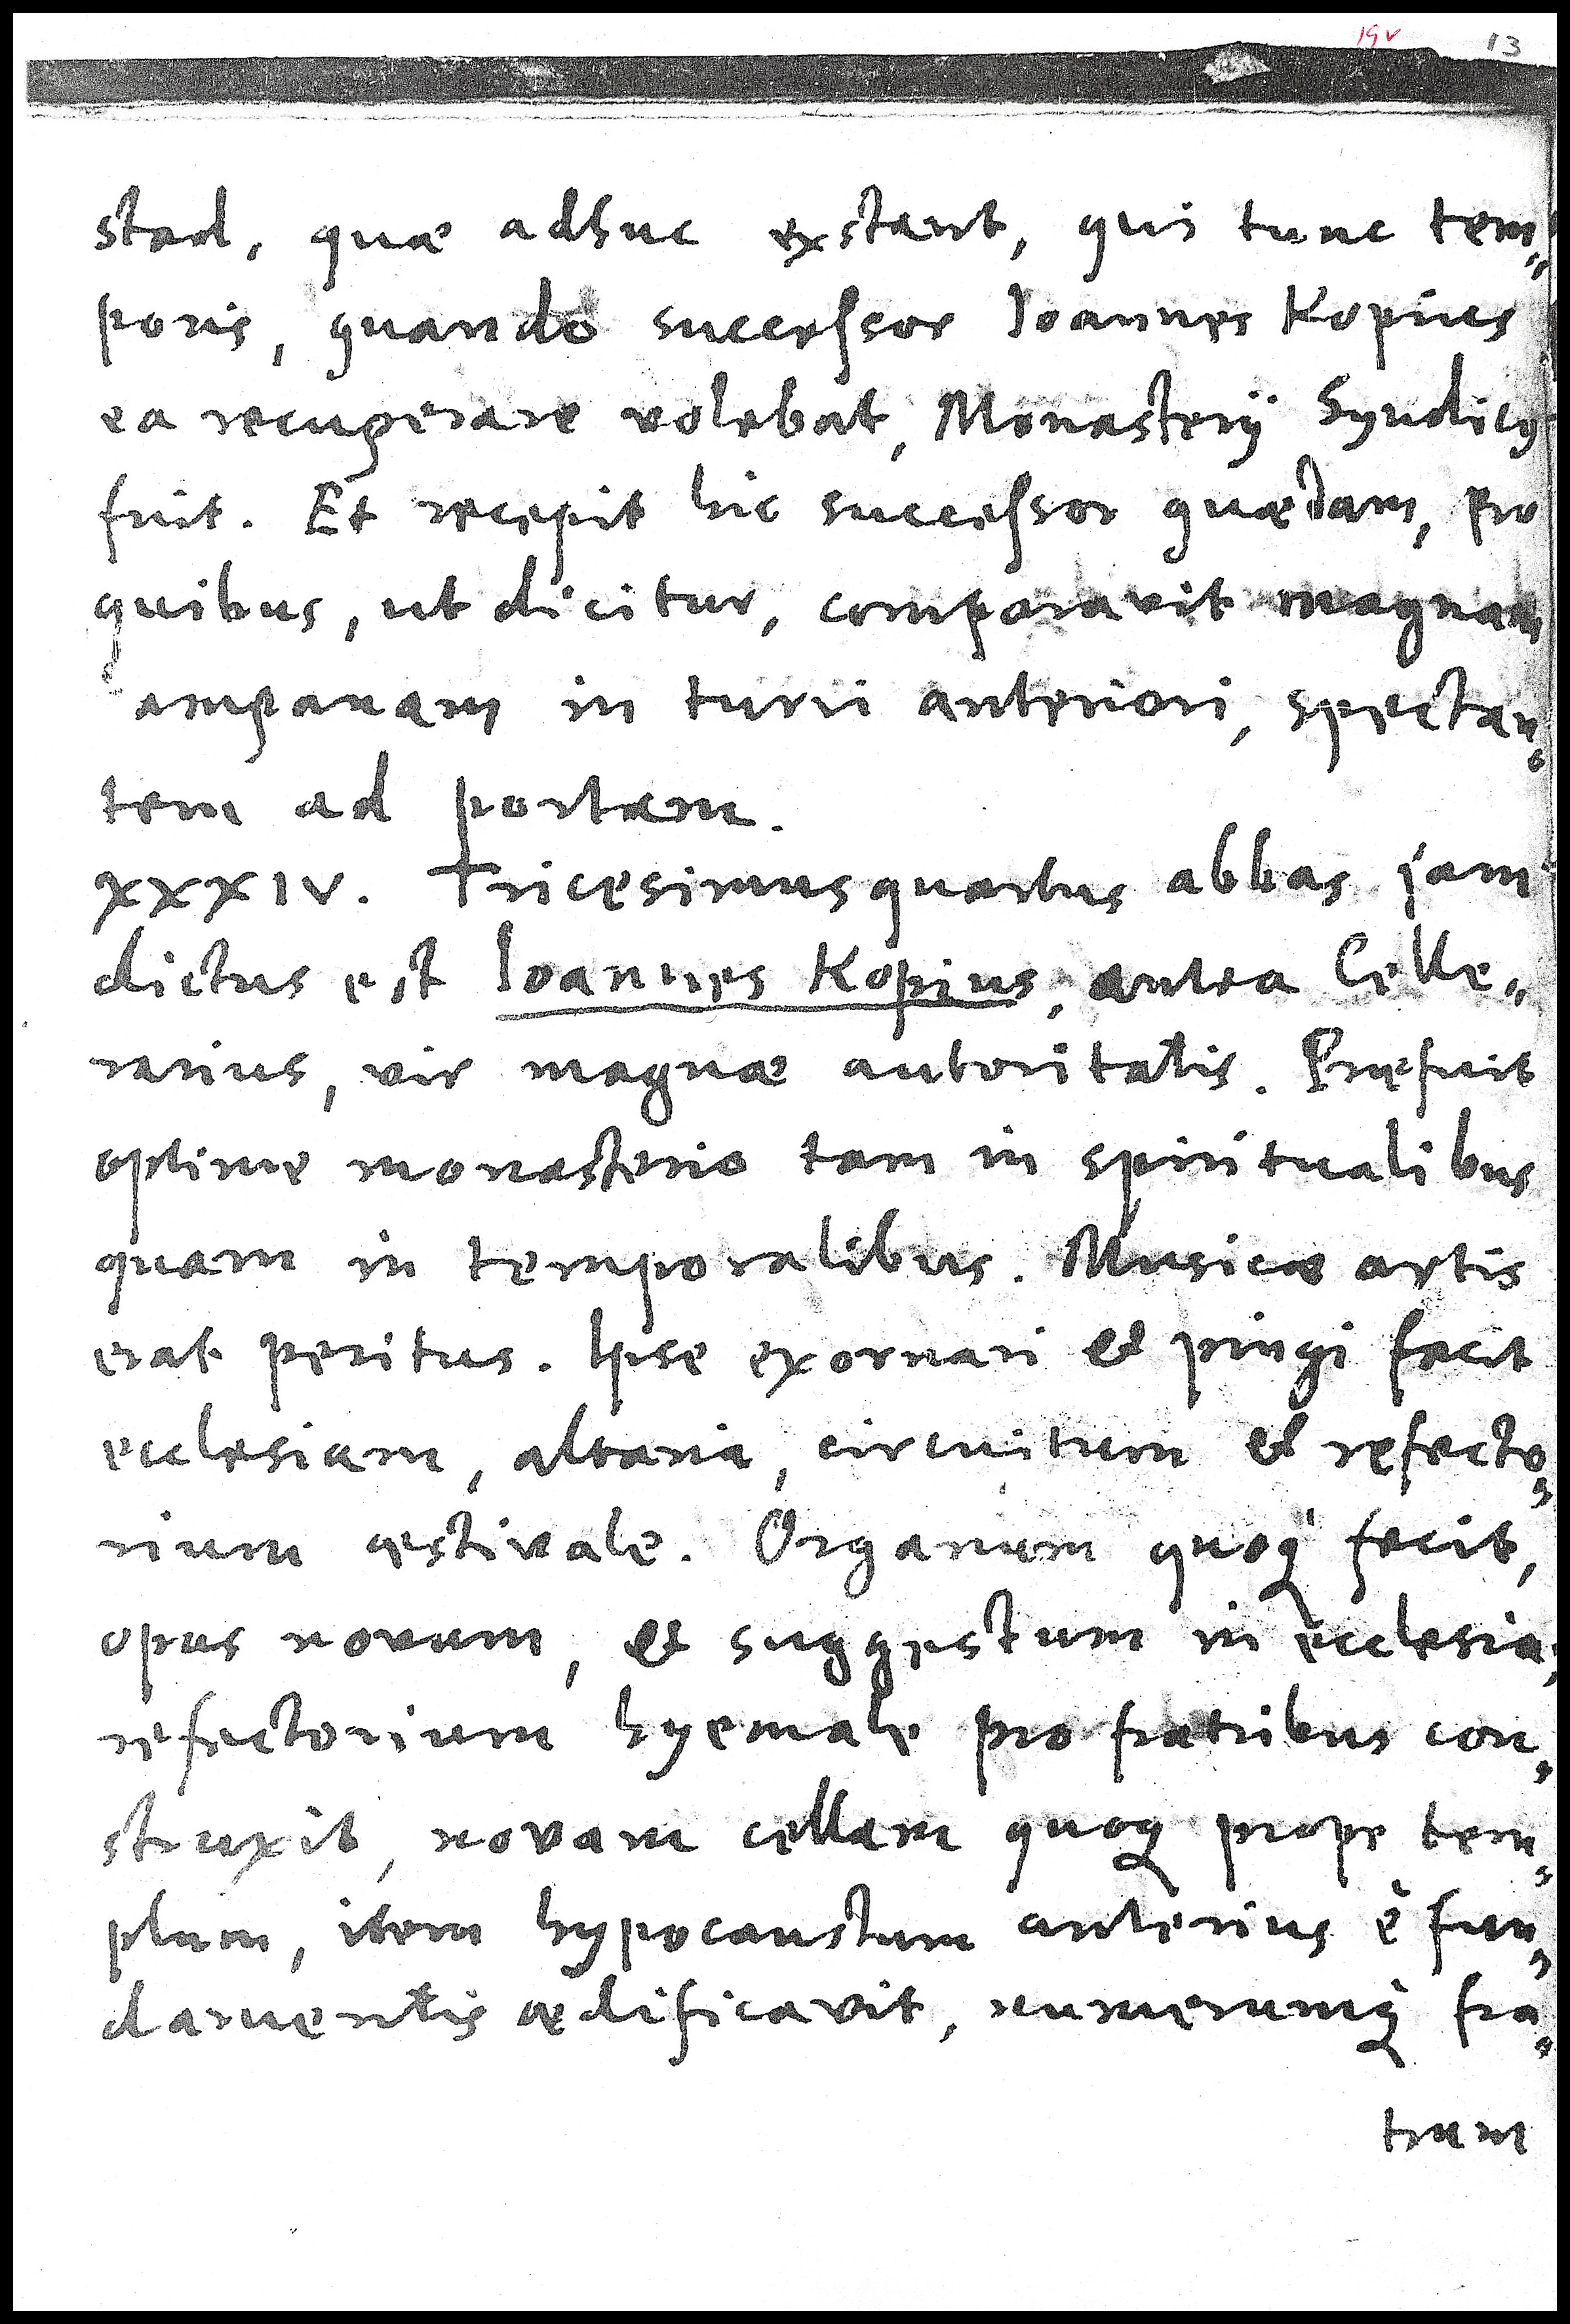 19v 13
stad, quæ adhuc exstant, qui tunc tem„
poris, quando successor Ioannes Kopius
ea recuperare volebat, Monasterÿ Syndicg
fuit. Et recepit hic successor quædam, pro
quibus, ut dicitur, comparavit magnam
campanam in turri anteriori, spectan„
tem ad portam.
XXXIV. Tricesimus quartus abbas jam
dictus est Ioannes Kopius, antea Celle„
rarius, vir magnæ autoritatis. Præfuit
optime monasterio tam in spiritualibus
quam in temporalibus. Musicæ artis
erat peritus. Ipse exornari et pingi fecit
ecclesiam, altaria, circuitum et refecto„
rium æstivale. Organum quoq fecit,
opus novum, et suggestum in ecclesia,
refectorium hyemale pro fratribus con„
struxit, novam cellam quoq prope tem„
plum, item hypocaustum anterius è fun„
damentis ædificavit, numerumq fra„
trum